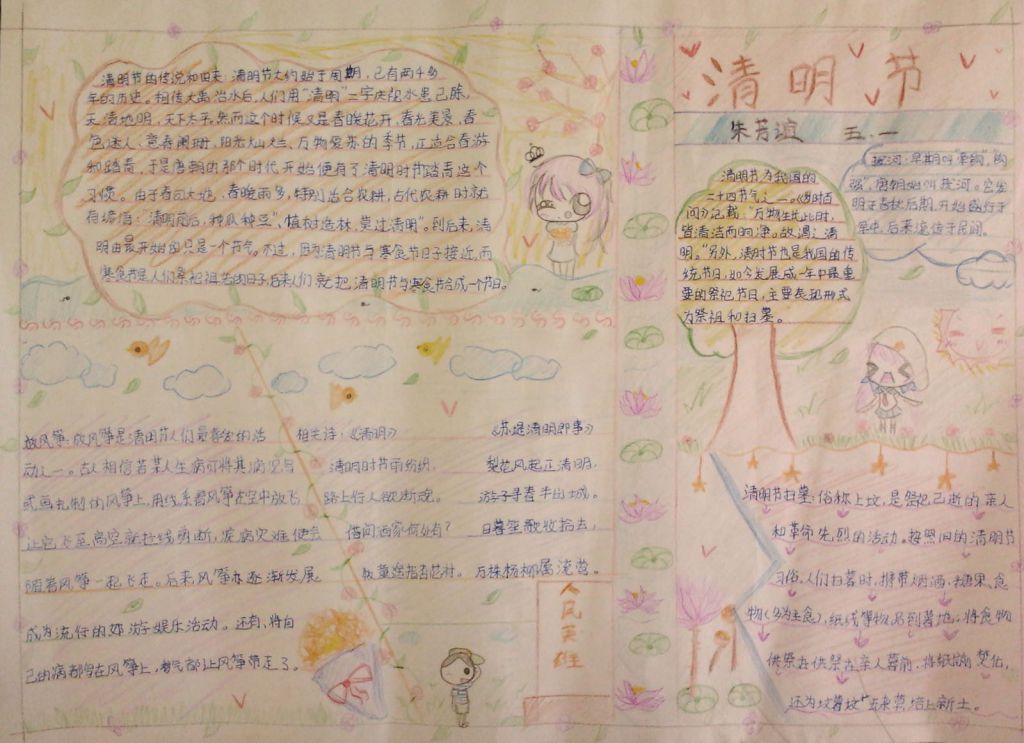 清明节的传说和由来：清明节大约始于周期，已有两千多
年的历史。相传大禹治水后，人们用“清明”二字庆祝水患已除，
天清地明，天下太平。然而这个时候又是春暖花开，春光美景，春
色迷人，意春阑珊，阳光大山大兰、万物复苏的季节，正适合春游
和踏青，于是唐朝的那个时代开始便有了清明时节踏青这个
习惯。由于春回大地，春暖雨多，特别适合农耕，古代农耕时就
有谚语：“清明前后，种瓜种豆”、“植树造林，莫过清明”。到后来，清
明由最开始的只是一个节气。不过，因为清明节与寒食节日子接近，而
寒食节是人们祭祀祖先的日子后来人们就把，清明节与寒食节合成一个节日。
清明节
朱芳谊 五.一
拔河：早期叫“牵钩”，“钩
强”，唐朝始叫拔河。它发
明于春秋后期，开始盛行于
军中，后来流传于民间。
清明节为我国的
二十四节气之一。《岁时百
问》记载：“万物生长此时，
皆清洁而明净。故谓之清
明。”另外，清时节也是我国的传
统节日，如今发展成一年中最重
要的祭祀节日，主要表现形式
为祭祖和扫墓。
放风筝：放风筝是清明节人们最喜爱的活
动之一。古人相信若某人生病可将其病况写
或画扎制的风筝上，用线系着风筝在空中放飞，
让它飞至高空就赶线剪断，疾病灾难便会
随着风筝一起飞走。后来风筝亦逐渐发展
成为流行的郊游娱乐活动。还有，将自
己的病都写在风筝上，晦气都让风筝带走了。
相关诗：《清明》
清明时节雨纷纷，
路上行人欲断魂。
借问酒家何处有？
牧童遥指杏花村。
《苏堤清明即事》
梨花风起正清明，
游子寻春半出城。
日暮笙歌收拾去，
万株杨柳属流莺。
人民英雄
清明节扫墓：俗称上坟，是祭祀已逝的亲人
和革命先烈的活动。按照旧的清明节
习俗，人们扫墓时，携带烟酒、糖果、食
物（多为主食），纸钱等物品到墓地，将食物
供祭在供祭在亲人墓前，将纸钱焚化，
还为坟墓坟土去来墓培上新土。